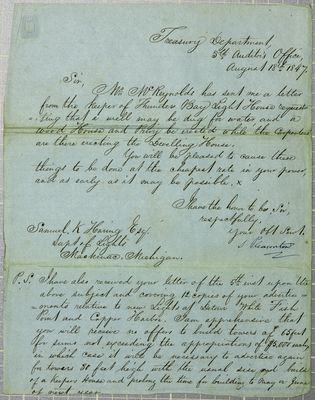 Treasury Department,
5th Auditor's Office,
August 18th 1847.
Sir,
Mr. McReynolds has sent me a letter
from the Keeper of Thunder Bay Light House request-
-ing that a well may be dug for water and a
Wood House and Privy be erected while the Carpenters
are there erecting the Dwelling House.
You will be pleased to cause these
things to be done at the cheapest rate in your power,
and as early as it may be possible. x
I have the honor to be, Sir,
respectfully,
your Obt Servt.
S Pleasonton
Samuel K Haring Esq.
Supt of Lights
Mackinac, Michigan.
P.S. I have also received your letter of the inst upon the
above subject and covering 12 copies of your advertise-
-ments relative to new Lights at Detour White Fish
Point and Copper Harbor. I am apprehensive that
you will receive no offers to build towers of 65 feet
for sums not exceeding the appropriations of $5,000 each,
in which case it will be necessary to advertise again
for towers 30 feet high with the usual size and build
of a Keepers House and prolong the time for building to May or June
of next year.